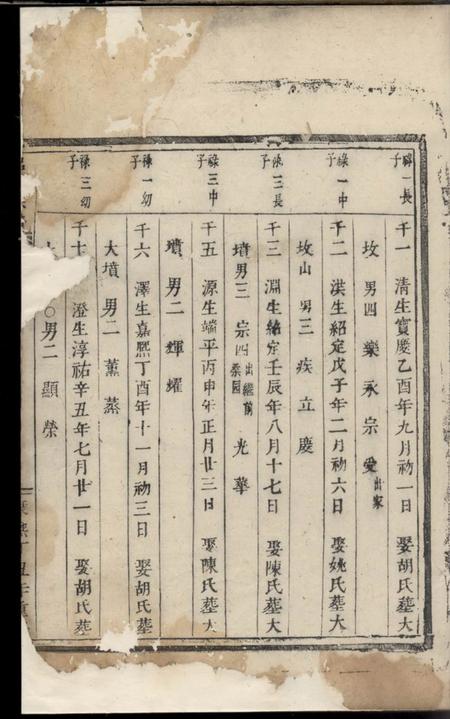 長子
千一 清生寶慶乙酉年九月初一日 娶胡氏葬大
坟 男四 樂永宗愛出家
祿一中子
千二 淇生紹定戊子年二月初六日 娶姚氏葬大
坟山 男三 疾立慶
祿三長子
千三 淵生紹定壬辰年八月十七日 娶陳氏葬大
墳男三 宗四出繼前 光華
祿三中子
千五 源生端平丙申年正月廿三日 娶陳氏葬大
墳 男二 輝耀
祿一幼子
千六 澤生嘉熙丁酉年十一月初三日 娶胡氏葬
大墳 男二 薰蒸
祿三幼子
千十 澄生淳祐辛丑年七月廿一日 娶胡氏葬
○男二 顯榮